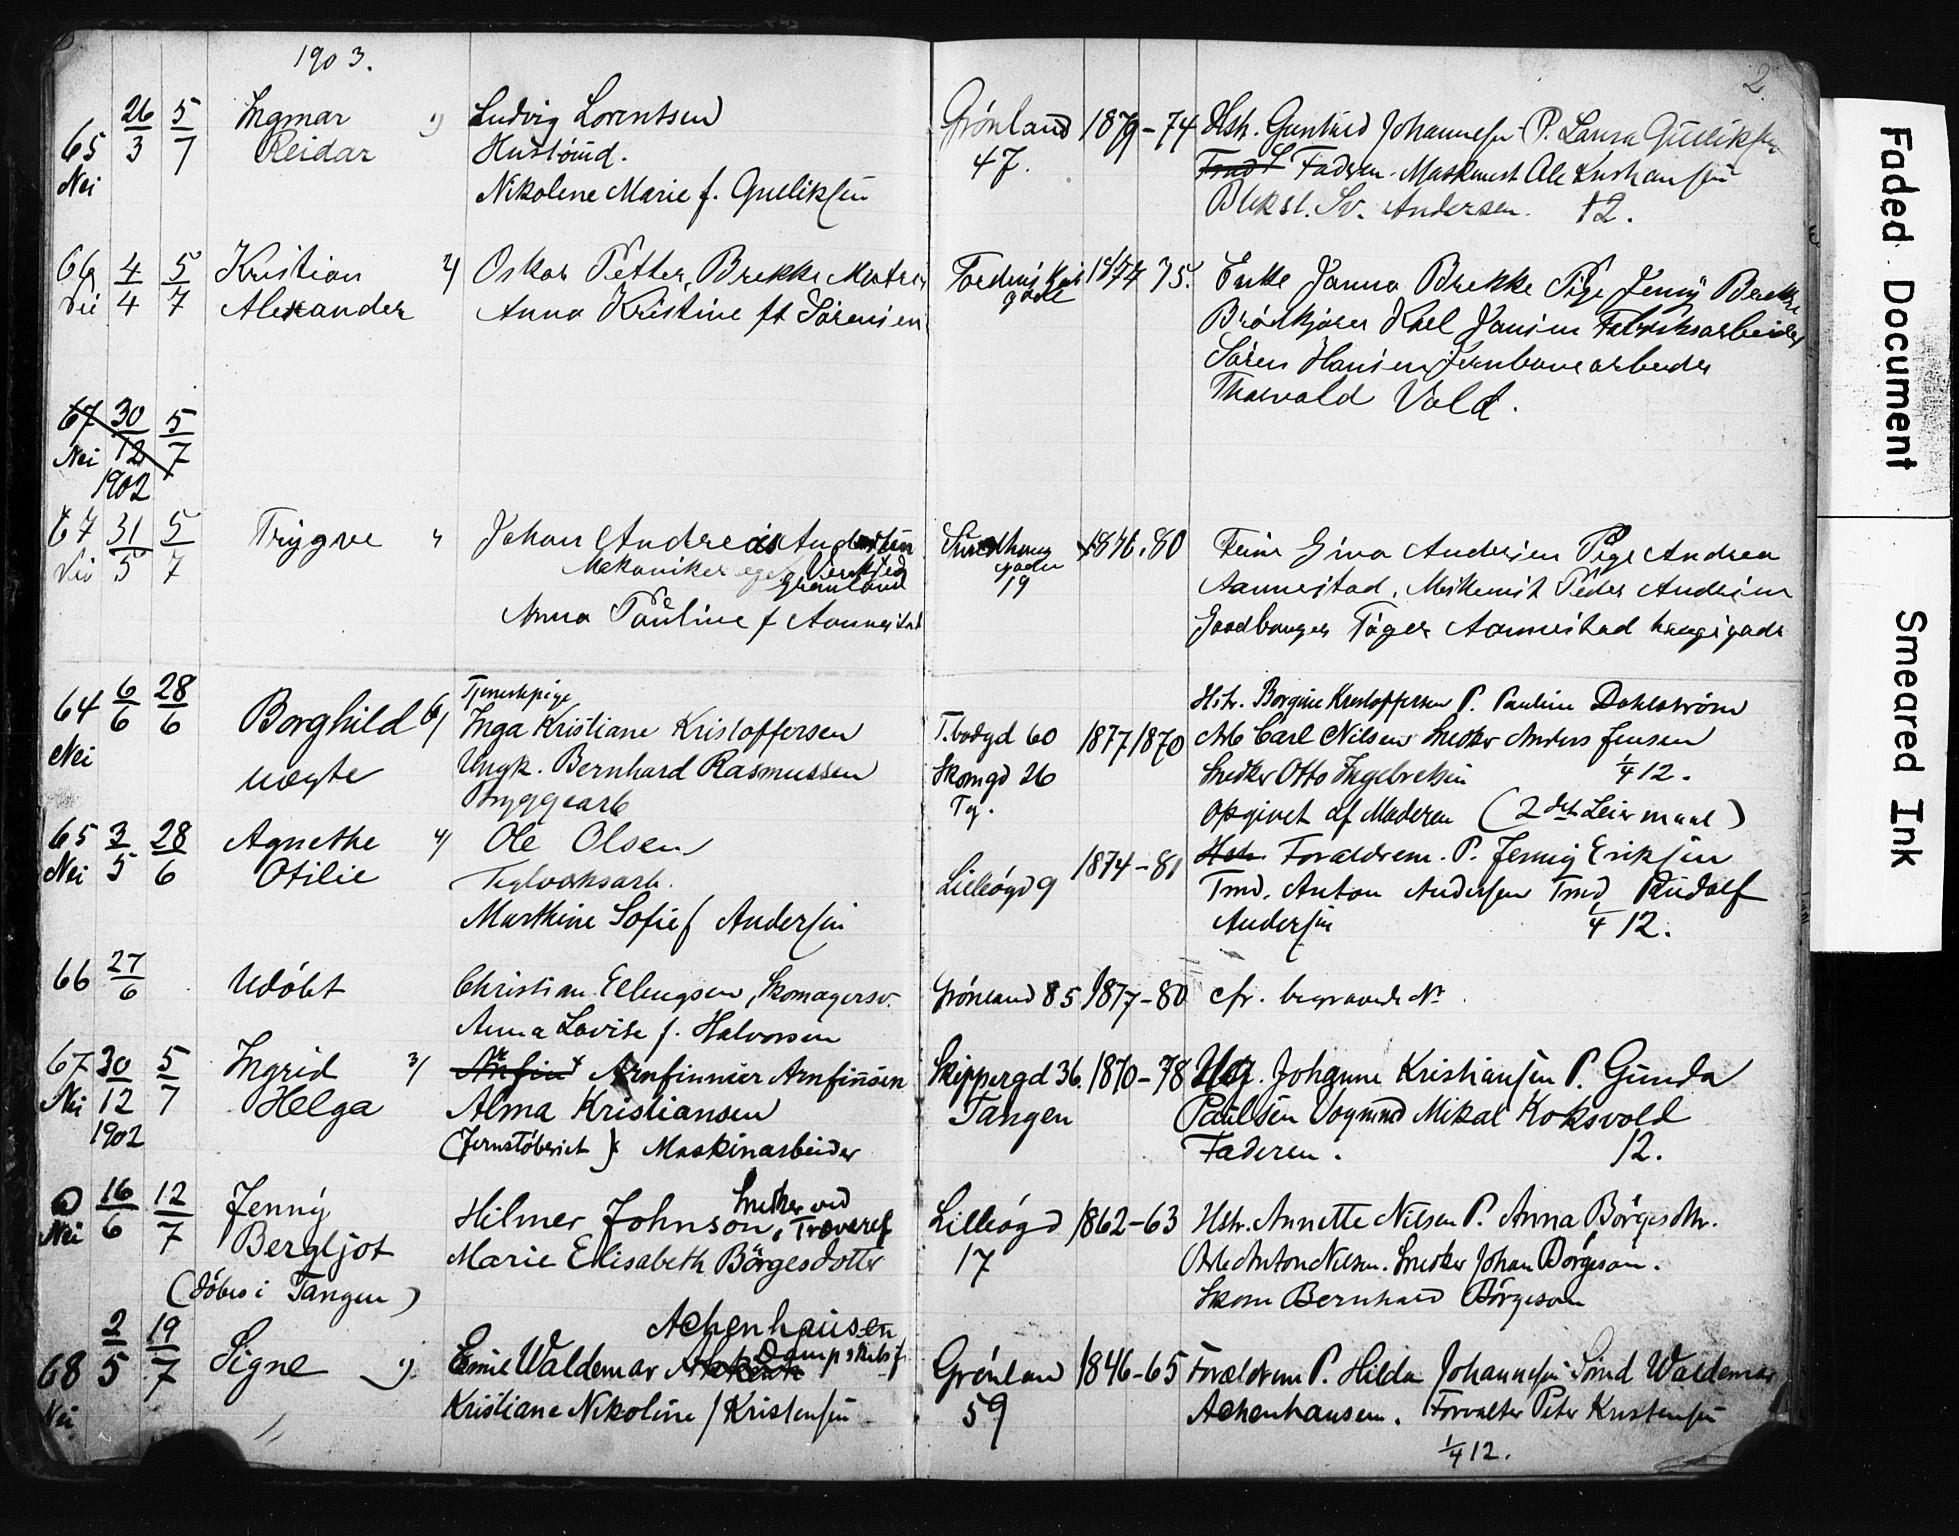 1903.
2
65 26/3 5/7 Ingmar Reidar Ludvig Lorentsen Grønland 1879-74 Hstr. Johannesen P. Laura Gulliksen
Nei 47. Faderen. Ole
Nikolene Marie f. Gulliksen Andersen. 12.
66 4/4 5/7 Kristian Oskar Petter Brekke 75. Enke Janna Brekke Pige Jenny Brekke
Alexander Anna Kristine ft Sørensen gade Brødkjører Karl Jansen Fabriksarbeider
Søren Hansen Jernbanearbeider
Thorvald Vold.
67 30/12 5/7
Nei 1902
67 31/5 5/7 Trygve Johan Andreas 80 Gina Andersen Pige Andrea
Mekaniker Verksted gaden Aannestad. Peder Andersen
Grønland 19
Anna Pauline f Aannestad Aannestad
64 6/6 28/6 Borghild 6/ Tjenestepige Hstr. Borgine Kristoffersen P. Pauline Dahlstrøm
Nei Inga Kristiane Kristoffersen T.bodgd 60 1877 1870 Arb Carl Nilsen Snedker Anders Jensen
uægte Ungk. Bernhard Rasmussen Skomgd 26 Snedker Otto Ingebretsen 1/4 12.
Bryggearb Tg. opgivet af Moderen (2det Leiermaal)
65 3/5 28/6 Agnethe 4/ Ole Olsen 1874-81 Forældrene. P. Jenny Eriksen
Nei Otilie Teglværksarb. Lilleøgd 9 Tmd. Anton Andersen Tmd Rudolf
Marthine Sofie f Andersen Andersen 1/4 12.
66 27/6 Udøbt Christian Ellingsen, Skomagersv. Grønland 85 1877-80 cfr. begravede No
Anna Lovise f. Halvorsen
67 30/12 5/7 Ingrid 3/ Arnfinnier Arnfinsen Skippergd 36 1870-78 Johanne Kristiansen P. Gunda
Nei 1902 Helga Alma Kristiansen Tangen Paulsen Vognmd Mikal Koksvold
(Jernstøberiet) Maskinarbeider Faderen. 12.
16/6 12/7 Jenny Snedker ved
Nei Bergljot Hilmer Johnson, Træveref Lilleøgd 1862-63 Hstr. Annette Nilsen P. Anna Börgesdtr.
Marie Elisabeth Börgesdotter 17 Arb Anton Nilsen. Snedker Johan Börgeson.
(døbes i Tangen) Skom Bernhard Börgeson
68 2/5 19/7 Signe Achenhausen
Nei Emil Waldemar Grønland 1846-65 Forældrene P. Hilda Johannesen Tømd Waldemar
Kristiane Nikoline f Kristensen 59 Achenhausen. Forvalter Peter Kristensen
1/4 12.
Faded Document
Smeared Ink